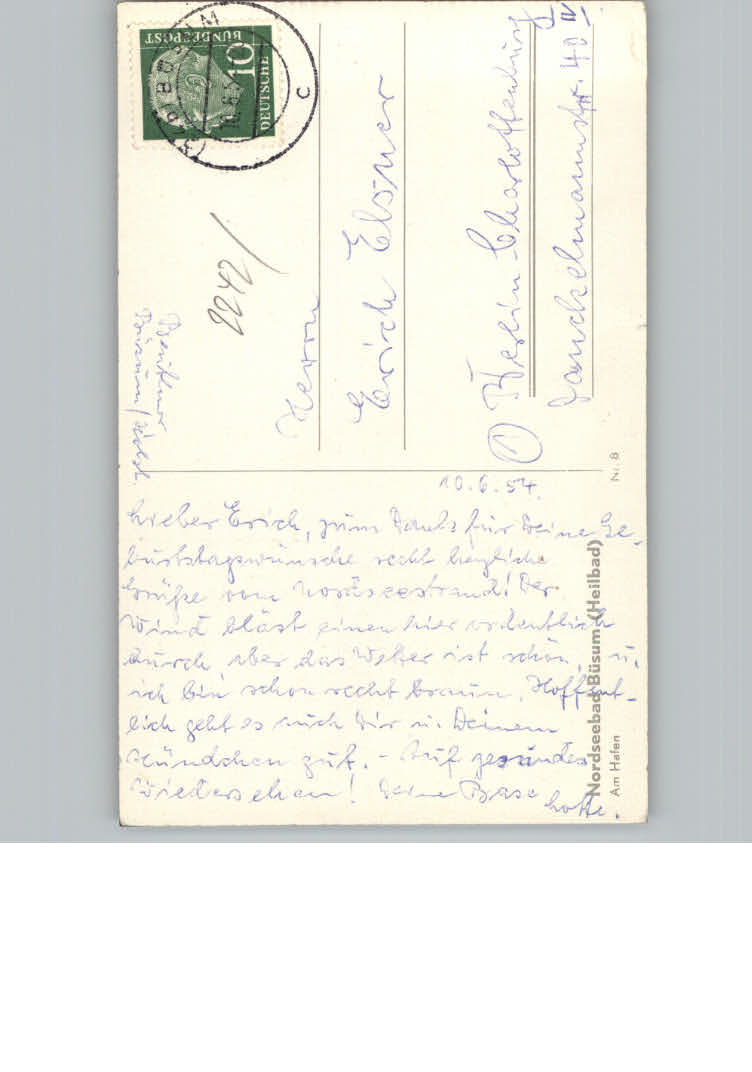 10.6.54.
Lieber Erich, zum Dank für Deine Ge-
burtstagswünsche recht herzliche
Grüße vom Nordseestrand! Der
Wind bläst einen hier ordentlich
durch aber das Wetter ist schön, u.
ich bin schon recht braun. Hoffent-
lich geht es auch Dir u. Deinem
Hündchen gut. - Auf gesundes
Wiedersehen! Deine Base
Lotte.
Büsum/Holst.
2242/
Herrn
Erich Elsner
① Berlin Charlottenburg
Danckelmannstr. 40 IV
DEUTSCHE
BUNDESPOST
10
BÜSUM
10.6.5
C
Nordseebad Büsum (Heilbad)
Am Hafen
Nr. 8